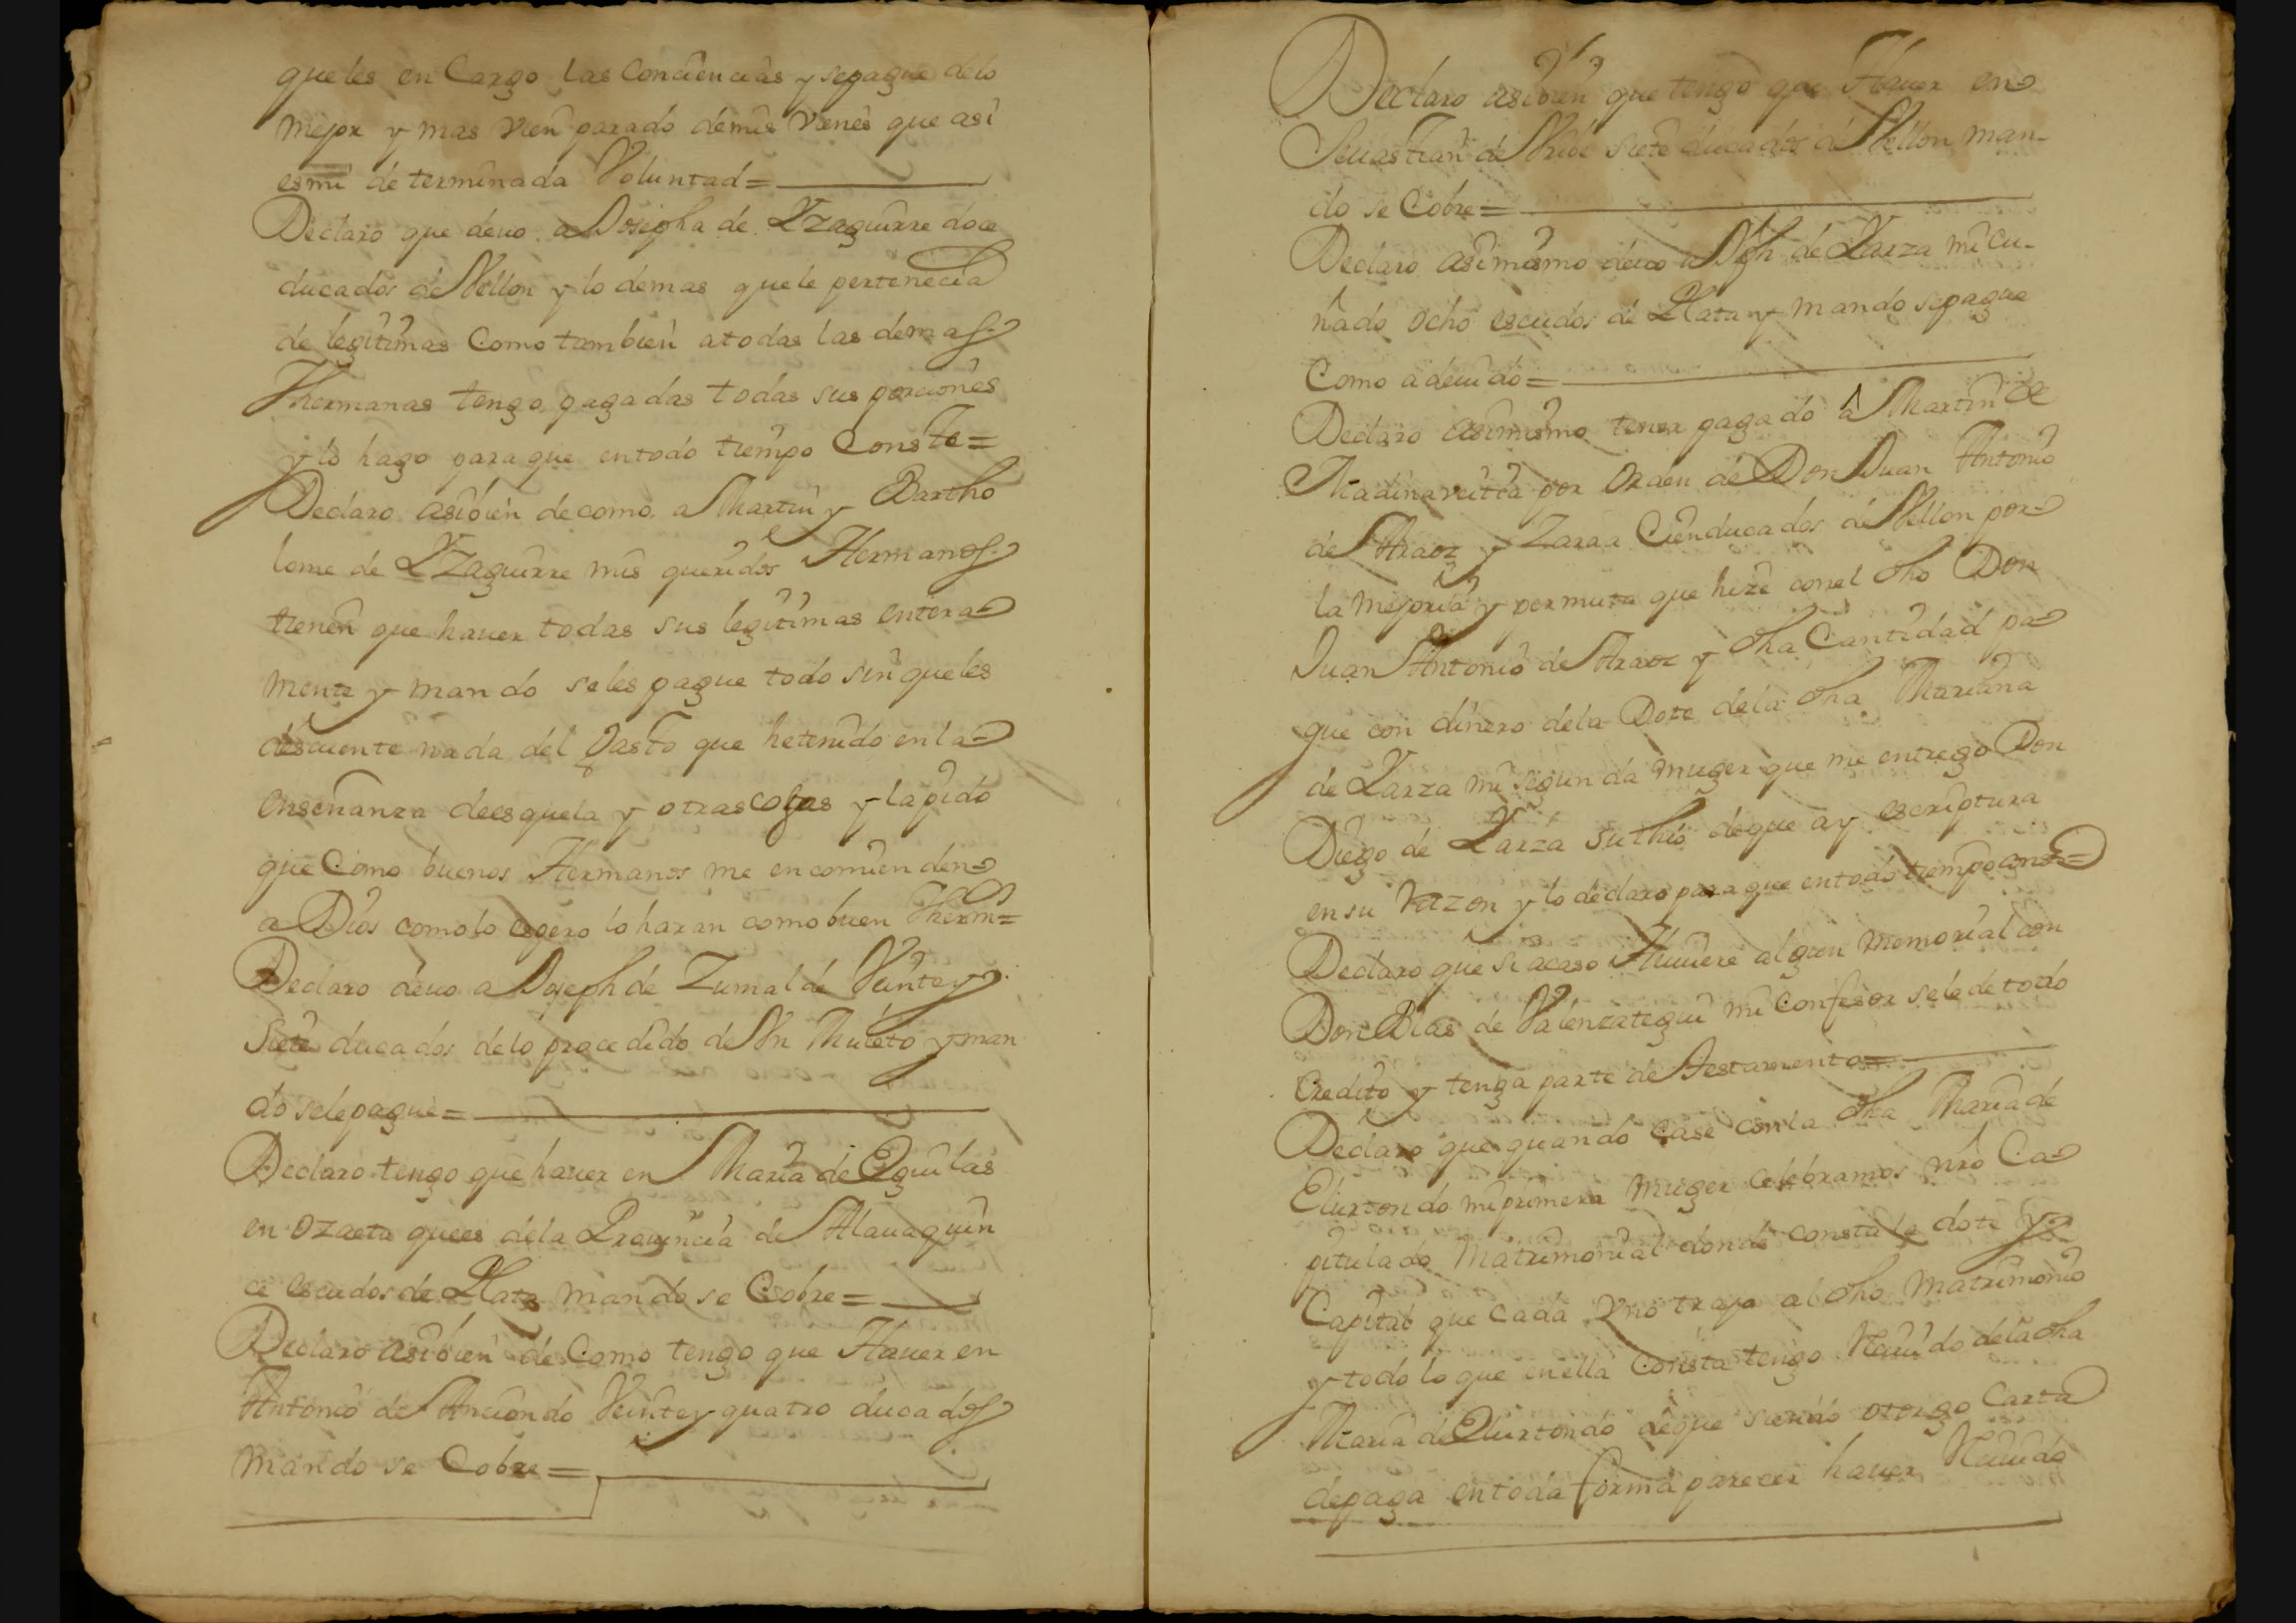 que les en Cargo las Conciencias y se pague de lo
mejor y mas vien parado de mis vienes que asi
es mi determinada Voluntad =
Declaro que deuo a Josepha de Yzaguirre doce
ducados de Vellon y lo demas que le pertenecia
de legitimas Como tambien a todas las demas
Hermanas tengo pagadas todas sus porciones
y lo hago para que en todo tiempo Conste =
Declaro asibien de como a Martin y Bartho
lome de Yzaguirre mis queridos Hermanos
tienen que hauer todas sus legitimas entera
mente y mando se les pague todo sin que les
descuente nada del Gasto que he tenido en la
enseñanza de esquela y otras cosas y la pido
que Como buenos Hermanos me encomienden
a Dios como lo espero lo haran como buen Herms =
Declaro deuo a Joseph de Zumalde Veinte y
Siete ducados de lo procedido de Vn Muleto y man
do se le pague =
Declaro tengo que hauer en Maria de Eguilas
en Ozaeta que es de la Prouincia de Alaua quin
ce escudos de Plata mando se Cobre =
Declaro asibien de Como tengo que Hauer en
Antonio de Anciondo Veinte y quatro ducados
mando se Cobre =
Declaro asibien que tengo que Hauer en
Seuastian de siete ducados de Vellon man-
do se Cobre =
Declaro asimismo deuo a Jph de Yarza mi cu-
ñado ocho escudos de Plata y mando se pague
Como a deuido =
Declaro asimismo tener pagado a Martin de
Madinaveitia por Orden de Don Juan Antonio
de Araoz y Zaraa Cien ducados de Vellon por
la mejoria y permuta que hize con el dho Don
Juan Antonio de Araoz y dha Cantidad pa
gue con dinero de la Dote de la dha Mariana
de Yarza mi segunda muger que me entrego Don
Diego de Yarza su thio de que ay escriptura
en su Razon y lo declaro para que en todo tiempo conste =
Declaro que si acaso Huuiere algun memorial con
Don Blas de Valenzategui mi Confesor se le de todo
Credito y tenga parte de Testamento =
Declaro que quando Case con la dha Maria de
Elurtondo mi primera muger celebramos nro Ca
pitulado Matrimonial donde consta la dote y
Capital que cada Vno trajo al dho matrimonio
y todo lo que en ella Consta tengo Reciuido de la dha
Maria de Elurtondo de que siendo otorgo Carta
de paga en toda forma parecer hauer Reciuido